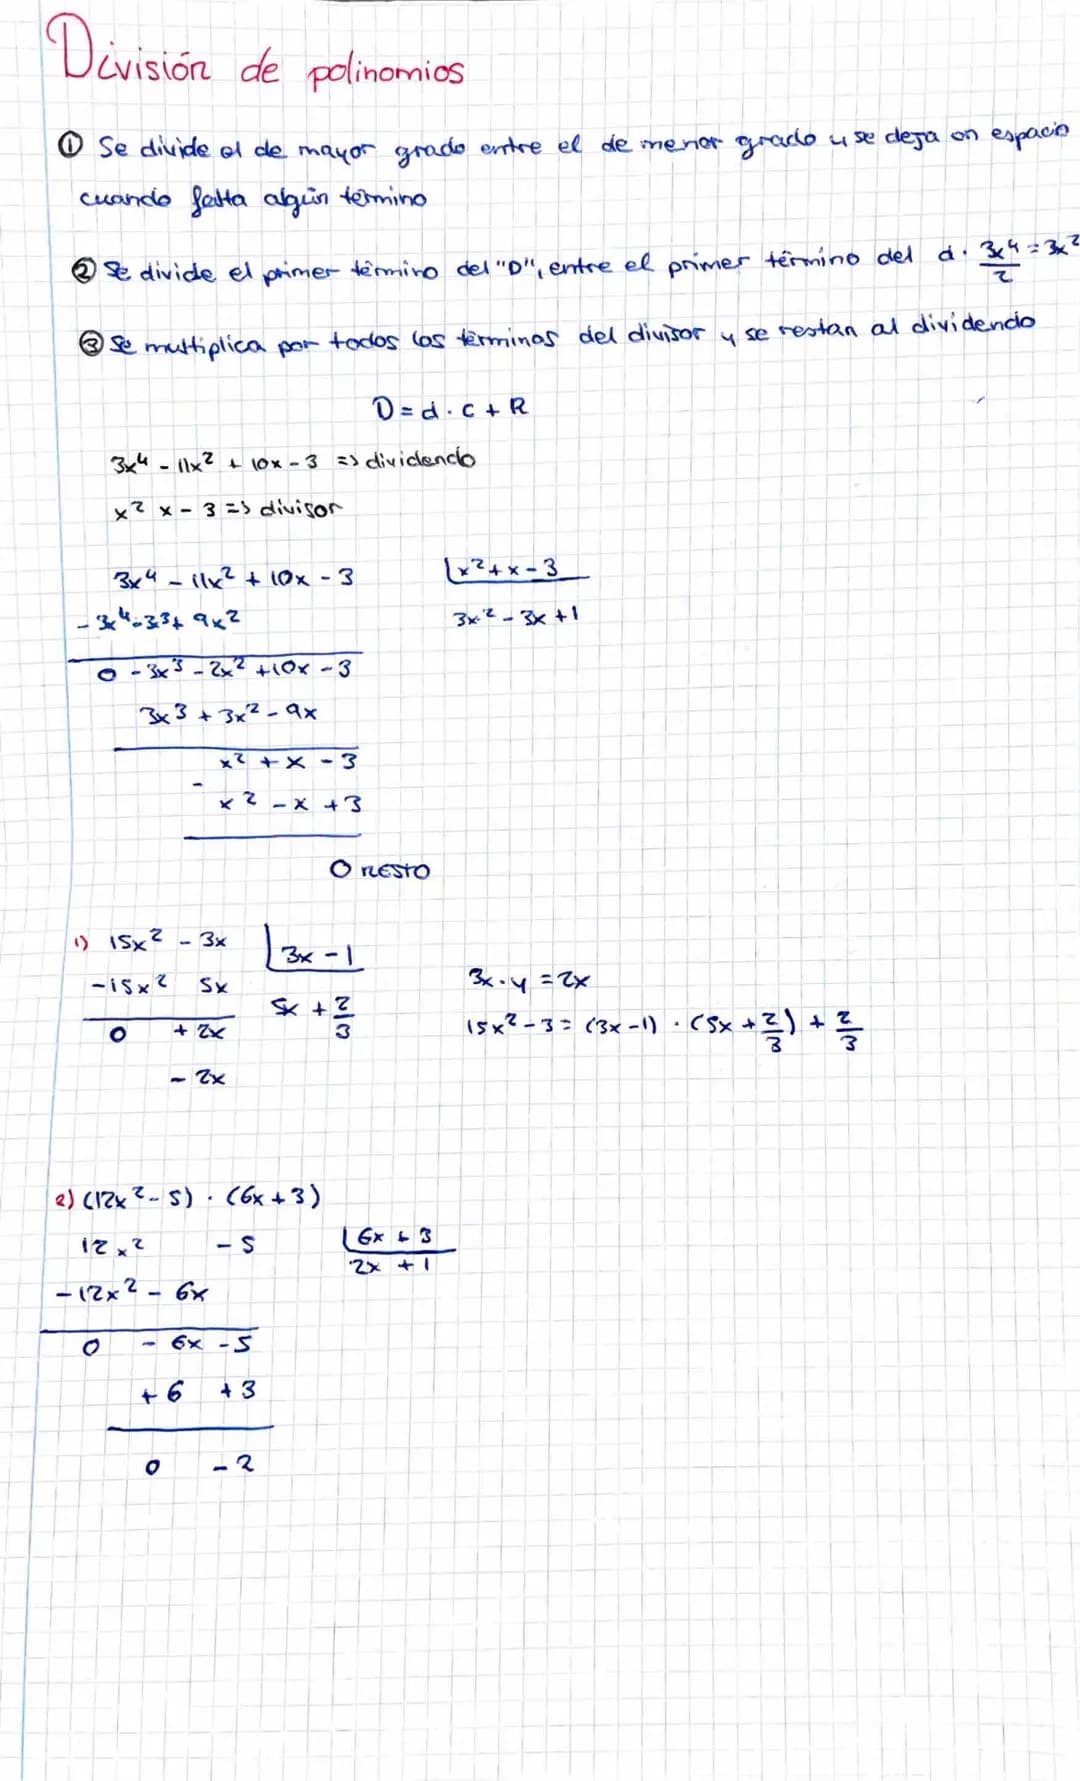 División de polinomios
① Se divide el de mayor grado entre el de menor grado y se deja un espacio
cuando falta algún término
② Se divide el primer término del "D", entre el primer término del d. 3x⁴/2 = 3x²
③ Se multiplica por todos los términos del divisor y se restan al dividendo
D = d . c + R
3x⁴ - 11x² + 10x - 3 => dividendo
x² x - 3 => divisor
3x⁴ - 11x² + 10x - 3 |x² + x - 3
- 3x⁴ - 3x³ + 9x² 3x² - 3x + 1
0 - 3x³ - 2x² + 10x - 3
3x³ + 3x² - 9x
x² + x - 3
- x² - x + 3
0 RESTO
1) 15x² - 3x |3x - 1
-15x² 5x 5x + 2/3 3x . y = 2x
0 + 2x 15x² - 3 = (3x - 1) . (5x + 2/3) + 2/3
- 2x
2) (12x² - 5) . (6x + 3)
12x² - 5 |6x + 3
-12x² - 6x 2x + 1
0 - 6x - 5
+ 6 + 3
0 - 2